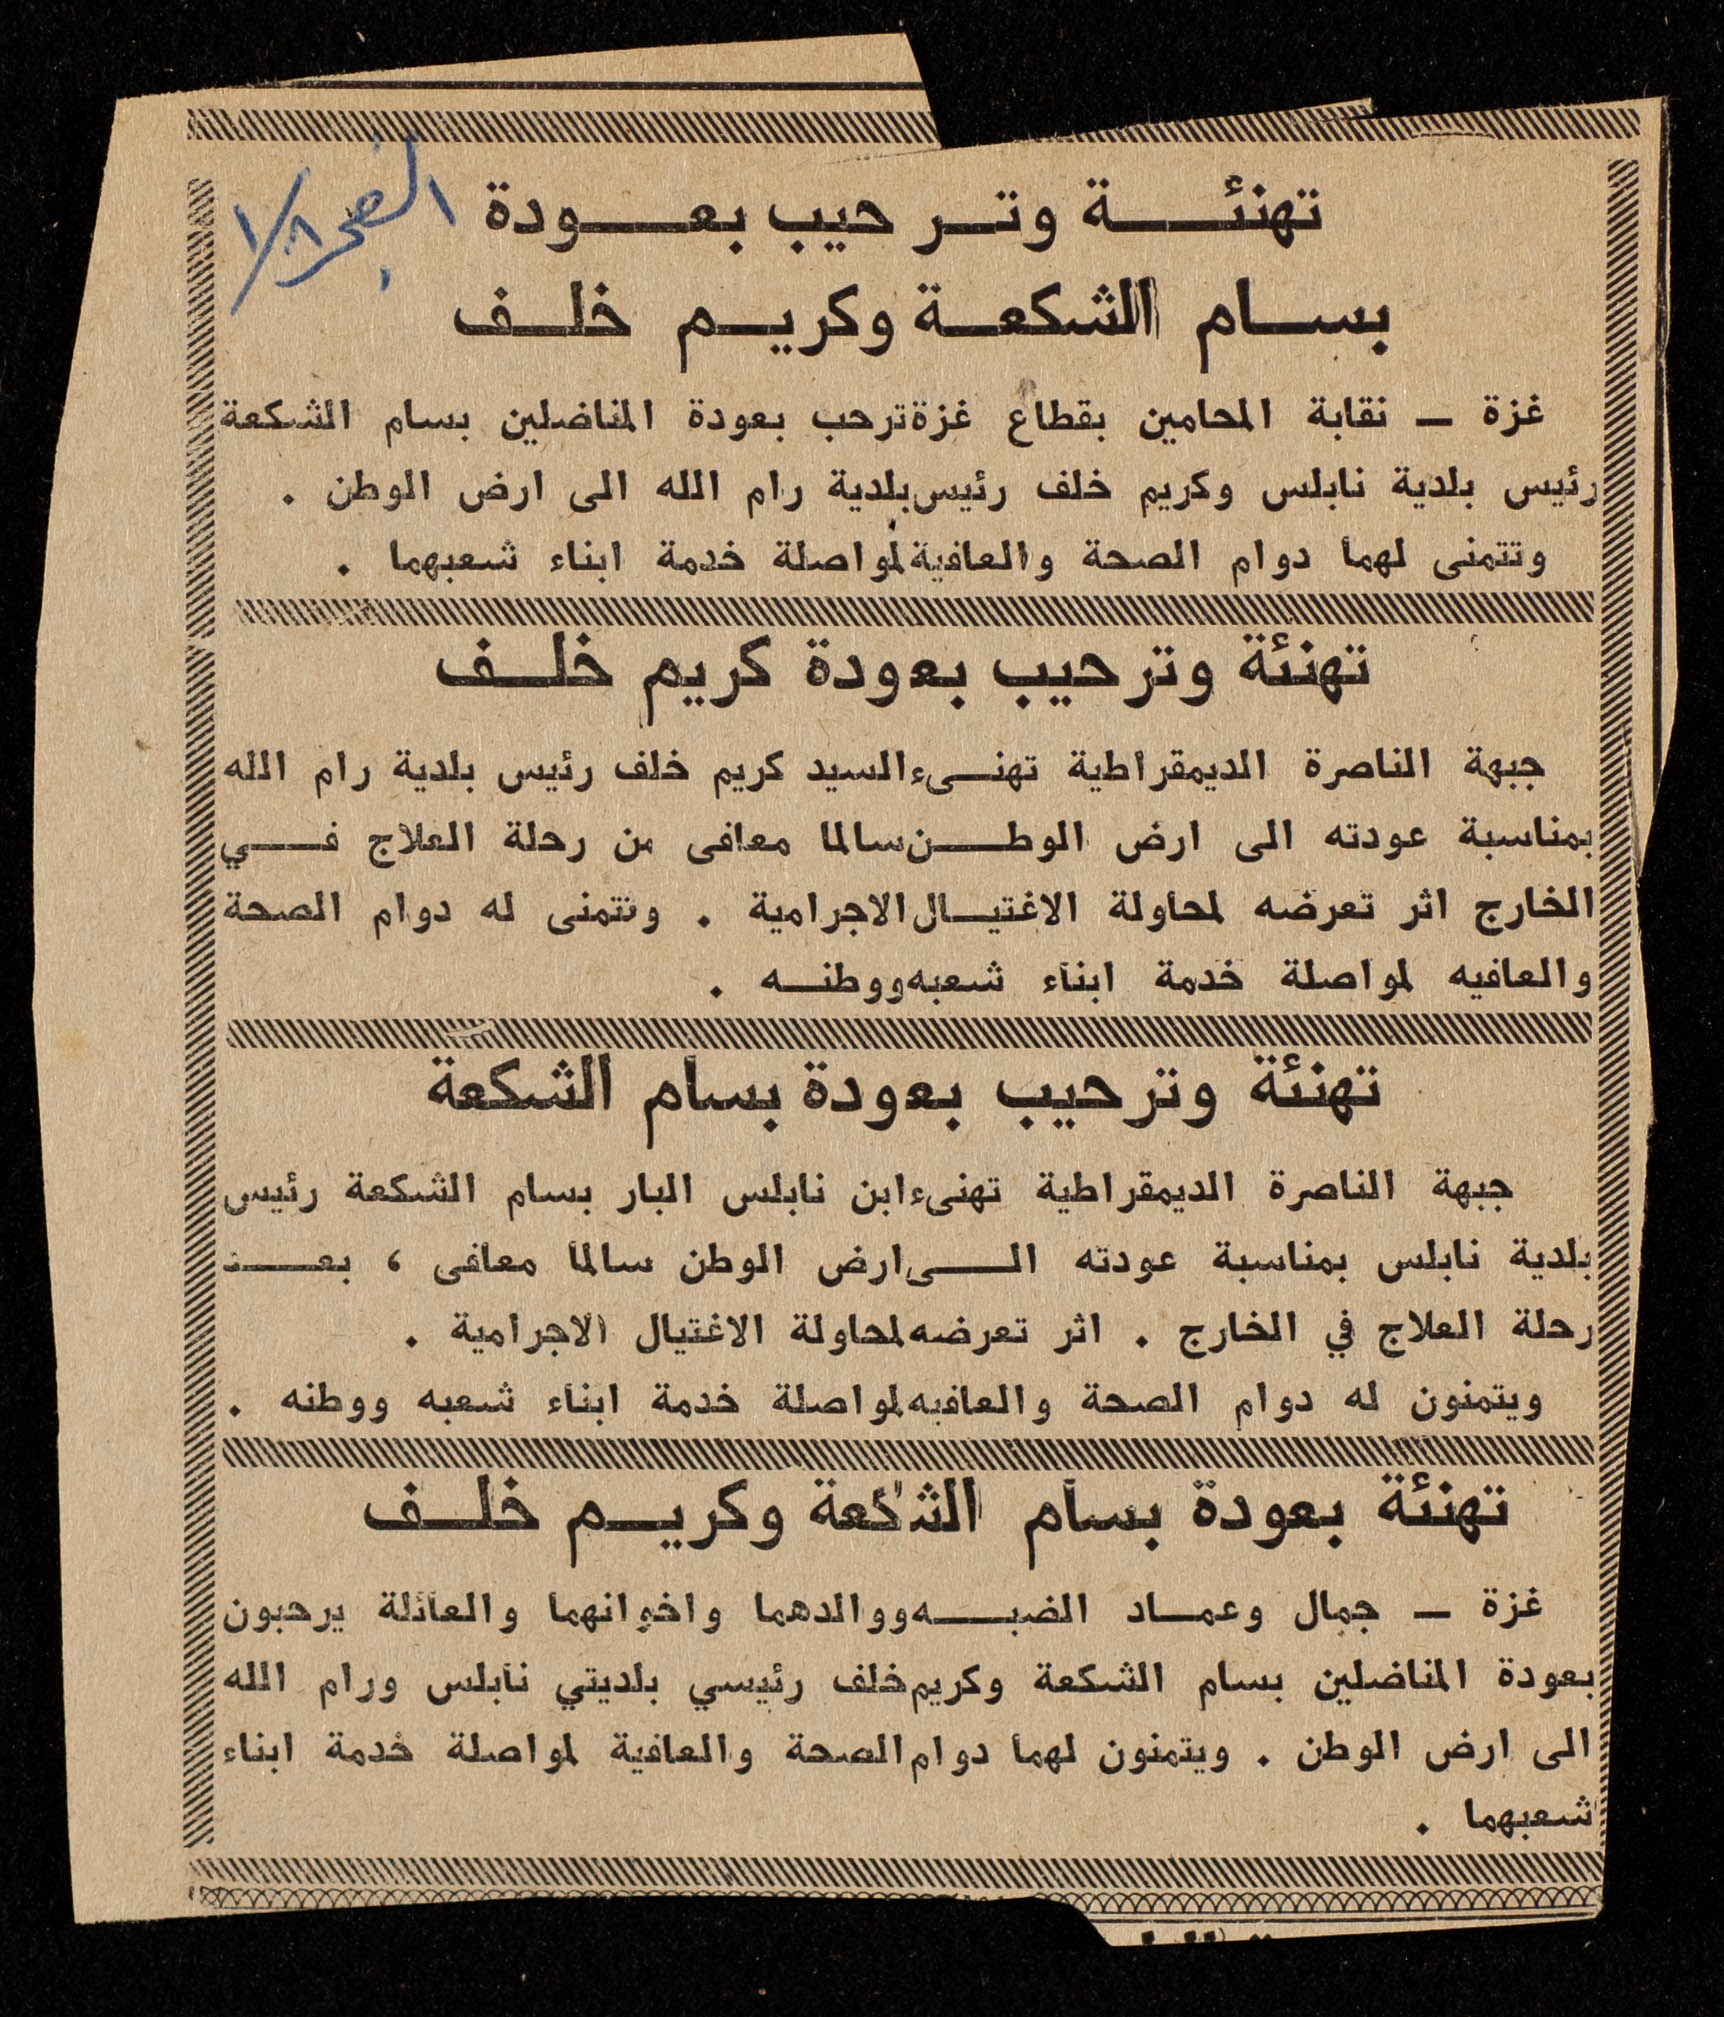 الفجر ١/٨
تهنئة وترحيب بعودة
بسام الشكعة وكريم خلف
غزة ــ نقابة المحامين بقطاع غزة ترحب بعودة المناضلين بسام الشكعة
رئيس بلدية نابلس وكريم خلف رئيس بلدية رام الله الى ارض الوطن .
وتتمنى لهما دوام الصحة والعافية لمواصلة خدمة ابناء شعبهما .
تهنئة وترحيب بعودة كريم خلف
جبهة الناصرة الديمقراطية تهنىء السيد كريم خلف رئيس بلدية رام الله
بمناسبة عودته الى ارض الوطن سالما معافى من رحلة العلاج في
الخارج اثر تعرضه لمحاولة الاغتيال الاجرامية . وتتمنى له دوام الصحة
والعافيه لمواصلة خدمة ابناء شعبه ووطنه .
تهنئة وترحيب بعودة بسام الشكعة
جبهة الناصرة الديمقراطية تهنىء ابن نابلس البار بسام الشكعة رئيس
بلدية نابلس بمناسبة عودته الى ارض الوطن سالما معافى ، بعد
رحلة العلاج في الخارج . اثر تعرضه لمحاولة الاغتيال الاجرامية .
ويتمنون له دوام الصحة والعافيه لمواصلة خدمة ابناء شعبه ووطنه .
تهنئة بعودة بسام الشكعة وكريم خلف
غزة ــ جمال وعماد الضبه ووالدهما واخوانهما والعائلة يرحبون
بعودة المناضلين بسام الشكعة وكريم خلف رئيسي بلديتي نابلس ورام الله
الى ارض الوطن . ويتمنون لهما دوام الصحة والعافية لمواصلة خدمة ابناء
شعبهما .